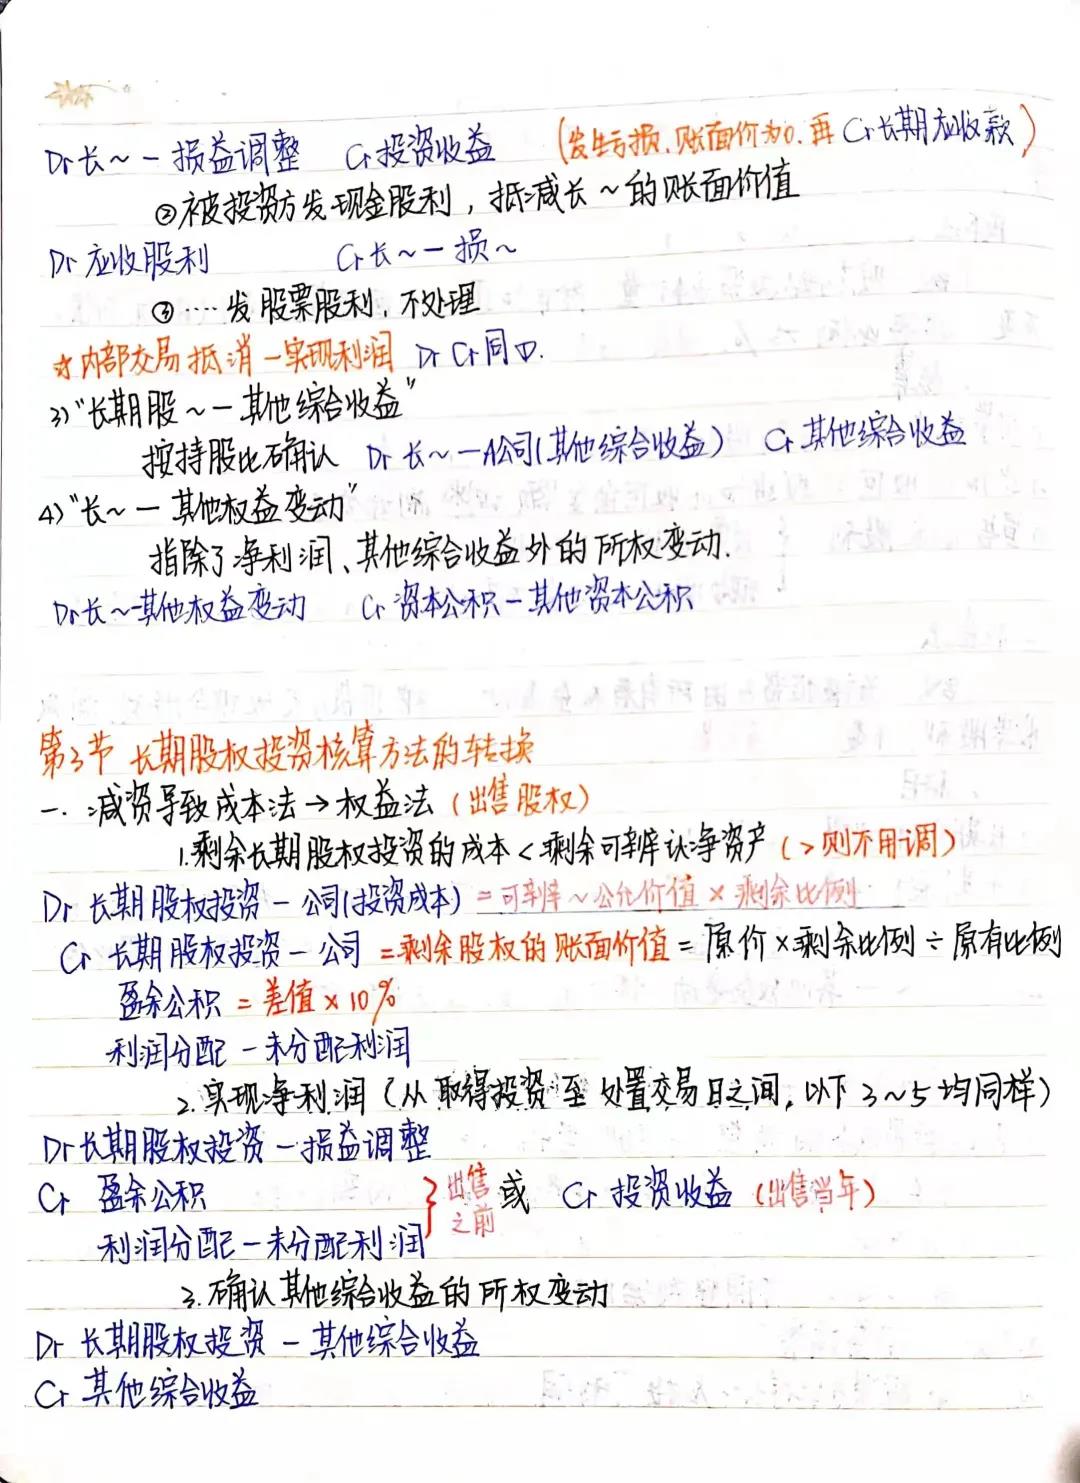 Dr 长～－损益调整 Cr 投资收益 (发生亏损.账面价为0.再 Cr 长期应收款)
②被投资方发现金股利，抵减长～的账面价值
Dr 应收股利 Cr 长～－损～
③……发股票股利，不处理
☆内部交易抵消－实现利润 Dr Cr 同①.
3)“长期股～－其他综合收益”
按持股比确认 Dr 长～－A公司(其他综合收益) Cr 其他综合收益
4)“长～－其他权益变动”
指除了净利润、其他综合收益外的所权变动.
Dr 长～-其他权益变动 Cr 资本公积－其他资本公积
第3节 长期股权投资核算方法的转换
一. 减资导致成本法→权益法(出售股权)
1.剩余长期股权投资的成本<剩余可辨认净资产(>则不用调)
Dr 长期股权投资－公司(投资成本) =可辨～公允价值×剩余比例
Cr 长期股权投资－公司 =剩余股权的账面价值=原价×剩余比例÷原有比例
盈余公积 =差值×10%
利润分配－未分配利润
2.实现净利润(从取得投资至处置交易日之间，以下3～5均同样)
Dr 长期股权投资－损益调整
Cr 盈余公积 }出售之前 或 Cr 投资收益(出售当年)
利润分配－未分配利润
3.确认其他综合收益的所权变动
Dr 长期股权投资－其他综合收益
Cr 其他综合收益